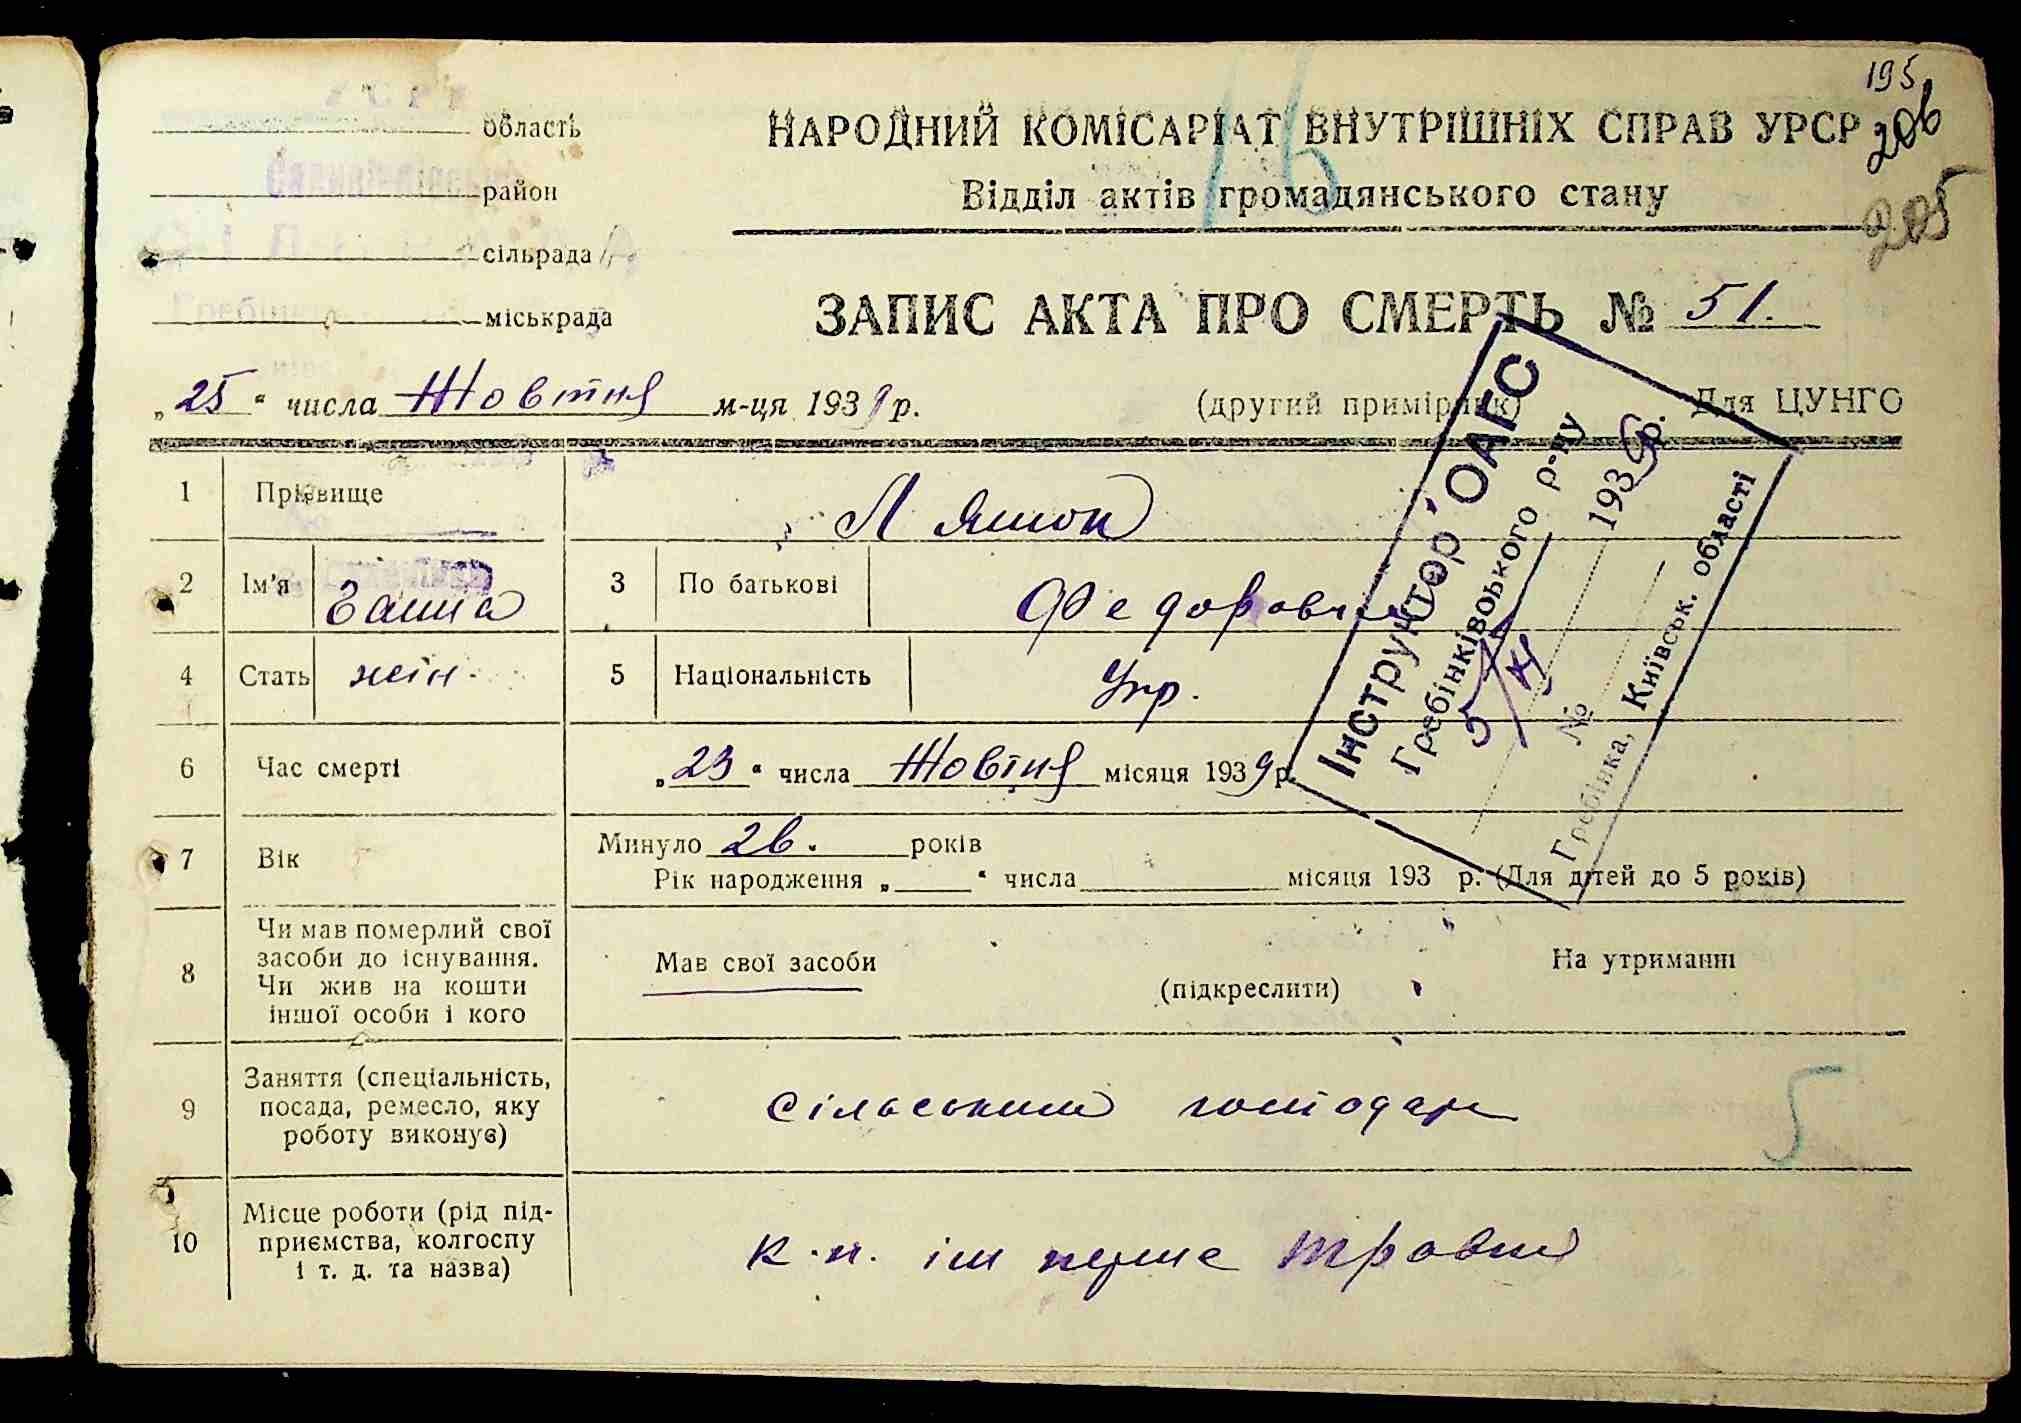 195
206
205
16
область
район
сільрада
міськрада
НАРОДНИЙ КОМІСАРІАТ ВНУТРІШНІХ СПРАВ УРСР
Відділ актів громадянського стану
ЗАПИС АКТА ПРО СМЕРТЬ № 51.
„25“ числа Жовтня м-ця 1939 р.
(другий примірник) Для ЦУНГО
Інструктор ОАГС
Гребінківського р-ну
5/XI 1939 р.
№
Гребінка, Київськ. області
1 Прізвище Ляшок
2 Ім'я Ганна 3 По батькові Федоровна
4 Стать жін. 5 Національність Укр.
6 Час смерті „23“ числа Жовтня місяця 1939 р.
7 Вік Минуло 26. років
Рік народження „ “ числа місяця 193 р. (Для дітей до 5 років)
8 Чи мав померлий свої
засоби до існування.
Чи жив на кошти
іншої особи і кого
Мав свої засоби (підкреслити) На утриманні
9 Заняття (спеціальність,
посада, ремесло, яку
роботу виконує)
сільський господар
5
10 Місце роботи (рід під-
приємства, колгоспу
і т. д. та назва)
ім перше травня